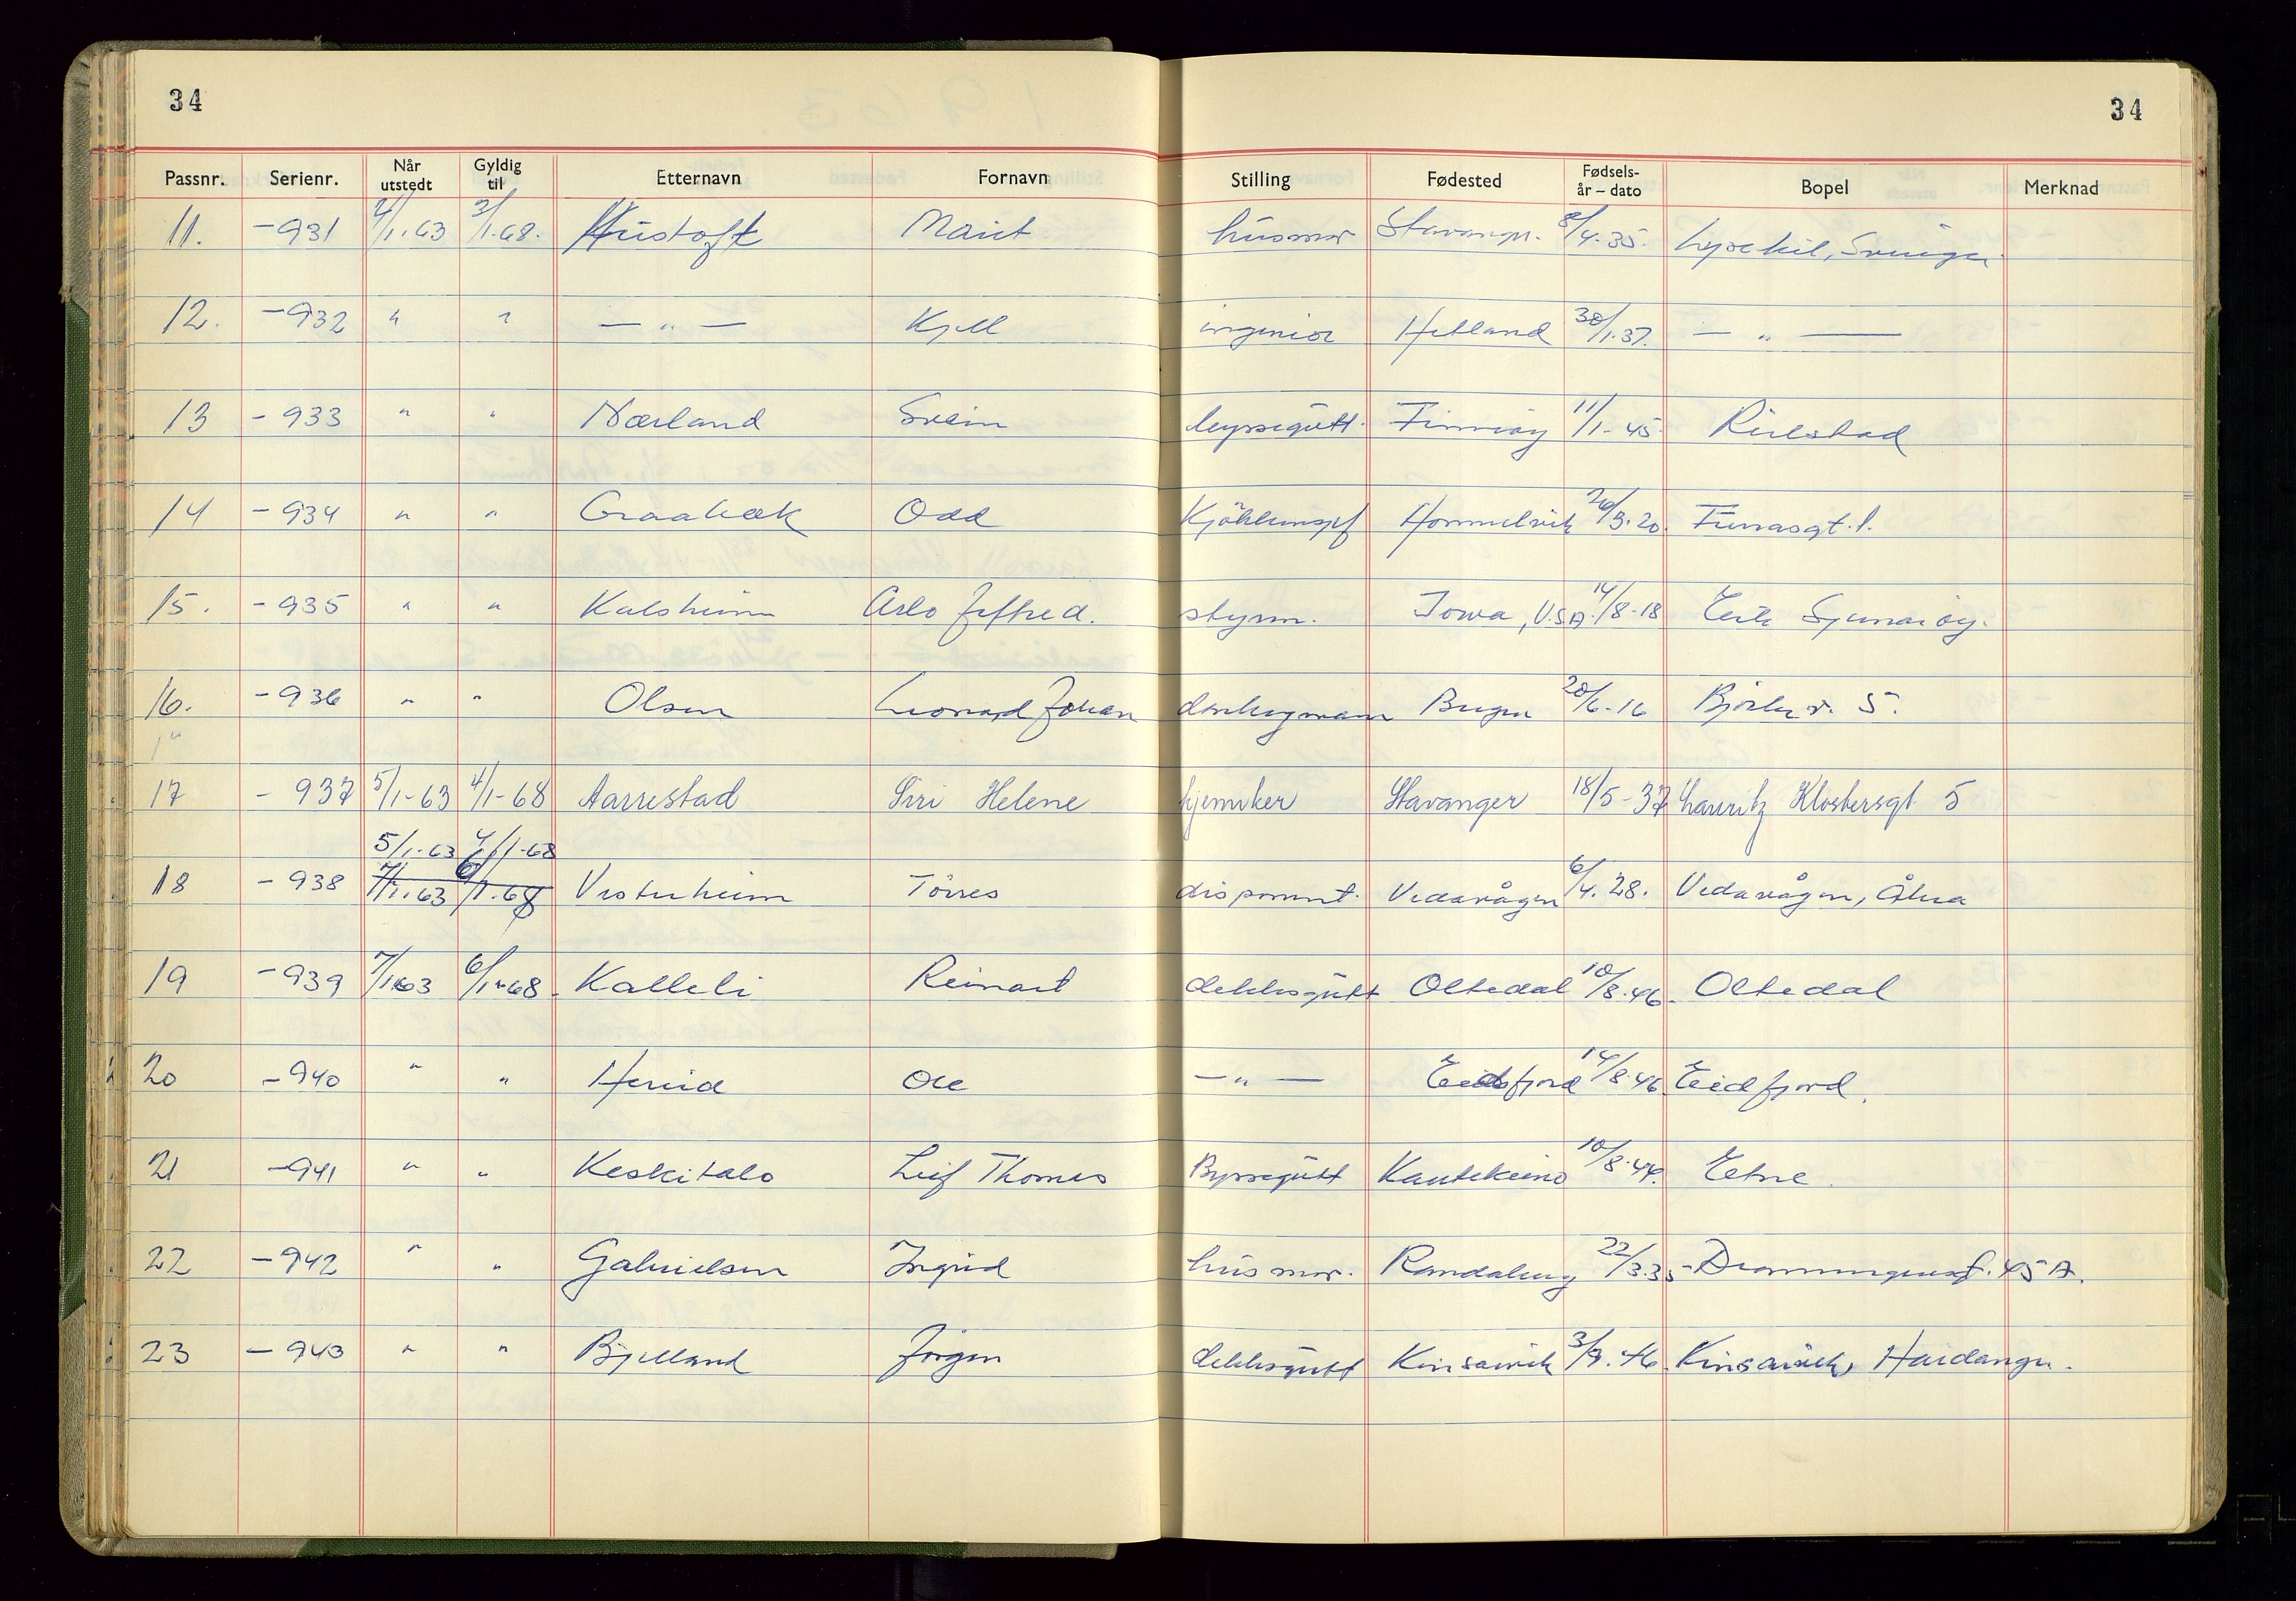 34 34
Passnr. Serienr. Når utstedt Gyldig til Etternavn Fornavn Stilling Fødested Fødsels- år – dato Bopel Merknad
11. -931 4/1.63 3/1.68. Hustoft Marit husmor Stavanger. 8/4.35. Lysekil, Sverige.
12. -932 " " — " — Kjell ingeniør Hetland 30/1.37. — " —
13 -933 " " Nærland Svein byssegutt. Finnøy 11/1-45.
14 -934 " " Odd Hommelvik
15. -935 " " Kalsheim Arlo styrm. Iowa, U.S.A. 14/8-18 Sjernarøy.
16. -936 " " Olsen Leonard Johan Bergen 20/6-16 5.
17 - 937 5/1-63 4/1-68 Aarrestad Siri Helene kjemiker Stavanger 18/5-37 Lauritz Klostersgt 5
5/1.63 4/1-68
18 -938 7/1.63 6/1.68 Vesterheim Törres disponent. Vedavågen 6/4.28. Vedavågen, Åkra
19 -939 7/1.63 6/1-68. Kalleli Reinart dekksgutt Oltedal 10/8.46. Oltedal
20 -940 " " Ole — " — Eidsfjord 14/8.46. Eidfjord.
21 -941 " " Keskitalo Leif Thomas Byssegutt Kautokeino 10/8.44. Etne
22 -942 " " Gabrielsen Ingrid husmor. Randaberg 22/3.35 45 A.
23 -943 " " Bjelland Jörgen dekksgutt Kinsarvik 3/9.46. Kinsarvik, Hardanger.